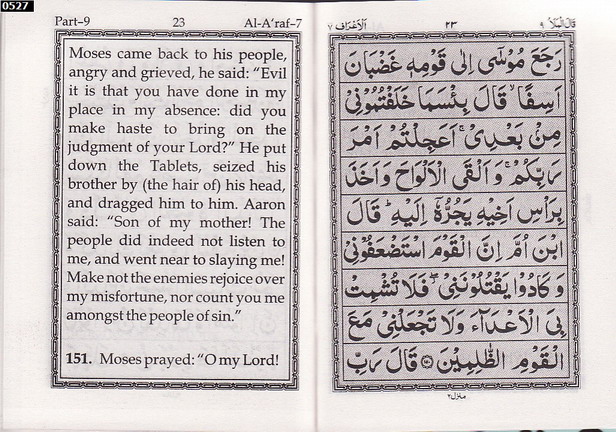 0527
Part–9 23 Al-A'raf–7
Moses came back to his people,
angry and grieved, he said: “Evil
it is that you have done in my
place in my absence: did you
make haste to bring on the
judgment of your Lord?” He put
down the Tablets, seized his
brother by (the hair of) his head,
and dragged him to him. Aaron
said: “Son of my mother! The
people did indeed not listen to
me, and went near to slaying me!
Make not the enemies rejoice over
my misfortune, nor count you me
amongst the people of sin.”
151. Moses prayed: “O my Lord!
قَالَ الْمَلَأُ ٩ ٢٣ اَلْاَعْرَاف ٧
رَجَعَ مُوْسٰٓى اِلٰى قَوْمِهٖ غَضْبَانَ
اَسِفًا ۙ قَالَ بِئْسَمَا خَلَفْتُمُوْنِيْ
مِنْۢ بَعْدِيْ ۚ اَعَجِلْتُمْ اَمْرَ
رَبِّكُمْ ۚ وَاَلْقَى الْاَلْوَاحَ وَاَخَذَ
بِرَاْسِ اَخِيْهِ يَجُرُّهٗٓ اِلَيْهِ ؕ قَالَ
ابْنَ اُمَّ اِنَّ الْقَوْمَ اسْتَضْعَفُوْنِيْ
وَكَادُوْا يَقْتُلُوْنَنِيْ ۖ فَلَا تُشْمِتْ
بِيَ الْاَعْدَآءَ وَلَا تَجْعَلْنِيْ مَعَ
الْقَوْمِ الظّٰلِمِيْنَ ﴿١٥٠﴾ قَالَ رَبِّ
منزل ٢